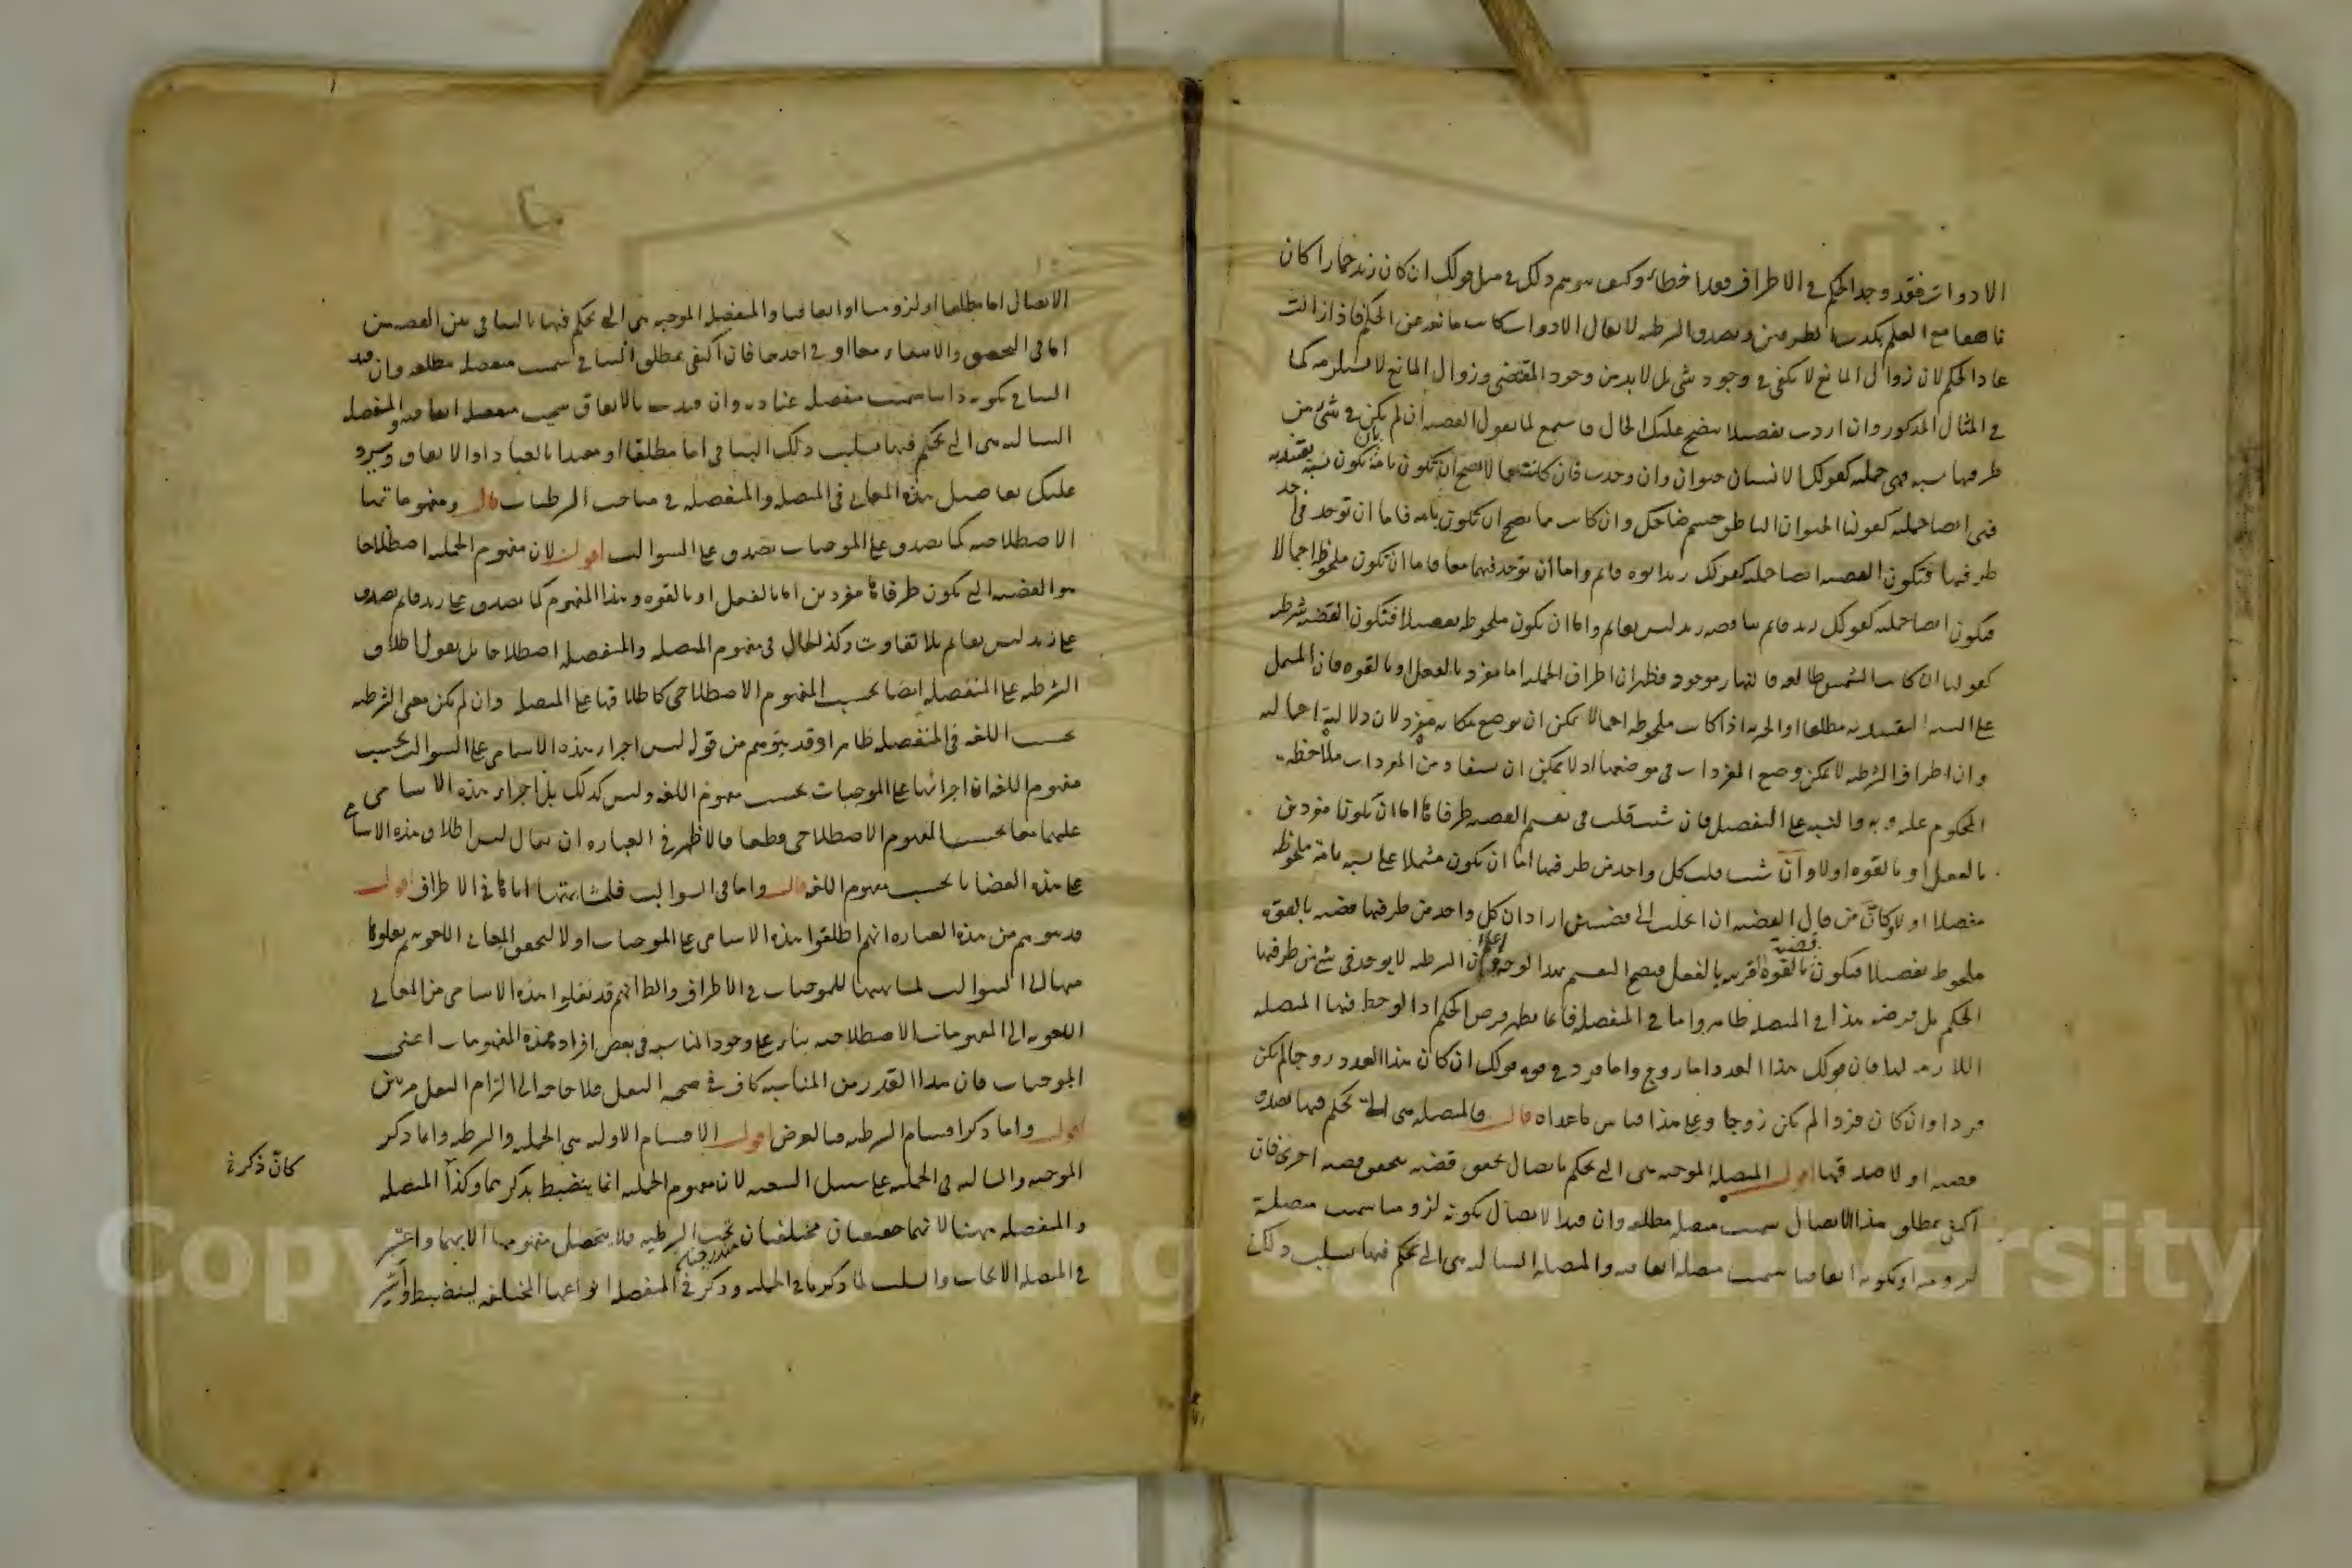 الادوات فقد وجد الحكم في الاطراف فقد اخطأ وكيف يتوهم ذلك في مثل قولك ان كان زيد حمارا كان
ناهقا مع العلم بكذب الطرفين وبصدق الشرطية لا يقال الادوات كانت مانعة عن الحكم فاذا زالت
عاد الحكم لان زوال المانع لا يكفي في وجود شي بل لا بد من وجود المقتضي وزوال المانع لا يستلزمه كما
في المثال المذكور وان اردت تفصيلا يتضح عليك الحال فاسمع لما نقول القضية ان لم يكن في شئ من
طرفيها نسبة فهي حملية كقولك الانسان حيوان وان وجدت فان كانت مما لا يصح ان تكون تامة بان تكون نسبة تقييدية
فهي ايضا حملية كقولنا الحيوان الناطق جسم ضاحك وان كانت مما يصح ان تكون تامة فاما ان توجد في احد
طرفيها فتكون القضية ايضا حملية كقولك زيد ابوه قائم واما ان توجد فيهما معا فاما ان تكون ملحوظة اجمالا
فتكون ايضا حملية كقولك زيد قائم يناقضه زيد ليس بقائم واما ان يكون ملحوظة تفصيلا فتكون القضية شرطية
كقولنا ان كانت الشمس طالعة فالنهار موجود فظهر ان اطراف الحملية اما مفرد بالفعل او بالقوة فان المشتمل
على النسبة التقييدية مطلقا او الخبرية اذا كانت ملحوظة اجمالا يمكن ان يوضع مكانه مفرد لان دلالته اجمالية
وان اطراف الشرطية لا يمكن وضع المفردات في موضعها اذ لا يمكن ان يستفاد من المفردات ملاحظة
المحكوم عليه وبه والنسبة على التفصيل فان شئت قلت في تقسيم القضية طرفاها اما ان يكونا مفردين
بالفعل او بالقوة اولا وان شئت قلت كل واحد من طرفيها اما ان يكون مشتملا على نسبة تامة ملحوظة
مفصلا اولا وكان من قال القضية ان انحلت الى قضيتين اراد ان كل واحد من طرفيها قضية بالقوة
ملحوظ تفصيلا فيكون قضية بالقوة القريبة بالفعل فيصح التقسيم بهذا الوجه واعلم ان الشرطية لا يوجد في شئ من طرفيها
الحكم بل فرضه هذا في المتصلة ظاهر واما في المنفصلة فانما يظهر فرض الحكم اذا لوحظ فيها المتصلة
اللازمة لها فان قولك هذا العدد اما زوج واما فرد في قوة قولك ان كان هذا العدد زوجا لم يكن
فردا وان كان فردا لم يكن زوجا وعلى هذا قياس ما عداه قال والمتصلة هي التي يحكم فيها بصدق
قضية او لا صدقها اقول المتصلة الموجبة هي التي يحكم باتصال تحقق قضية بتحقق قضية اخرى فان
اكتفي بمطلق هذا الاتصال سميت متصلة مطلقة وان قيد الاتصال بكونه لزوميا سميت متصلة
لزومية او بكونه اتفاقيا سميت متصلة اتفاقية والمتصلة السالبة هي التي يحكم فيها بسلب ذلك
الاتصال اما مطلقا او لزوميا او اتفاقيا والمنفصلة الموجبة هي التي يحكم فيها بالتنافي بين القضيتين
اما في التحقق والانتفاء معا او في احدهما فان اكتفي بمطلق التنافي سميت منفصلة مطلقة وان قيد
التنافي بكونه ذاتيا سميت منفصلة عنادية وان قيدت بالاتفاق سميت منفصلة اتفاقية والمنفصلة
السالبة هي التي يحكم فيها بسلب ذلك التنافي اما مطلقا او مقيدا بالعناد او الاتفاق وسيرد
عليك تفاصيل هذه المعاني في المتصلة والمنفصلة في مباحث الشرطيات قال ومفهوماتها
الاصطلاحية كما تصدق على الموجبات تصدق على السوالب اقول لان مفهوم الحملية اصطلاحا
هو القضية التي يكون طرفاها مفردين اما بالفعل او بالقوة وهذا المفهوم كما يصدق على زيد قائم يصدق
على زيد ليس بقائم بلا تفاوت وكذا الحال في مفهوم المتصلة والمنفصلة اصطلاحا بل نقول اطلاق
الشرطية على المنفصلة ايضا بحسب المفهوم الاصطلاحي كاطلاقها على المتصلة وان لم يكن معنى الشرطية
بحسب اللغة في المنفصلة ظاهرا وقد يتوهم من قوله ليس اجراء هذه الاسامي على السوالب بحسب
مفهوم اللغة ان اجرائها على الموجبات بحسب مفهوم اللغة وليس كذلك بل اجراء هذه الاسامي
عليهما معا بحسب المفهوم الاصطلاحي قطعا فالاظهر في العبارة ان يقال ليس اطلاق هذه الاسامي
على هذه القضايا بحسب مفهوم اللغة قال واما في السوالب فلمشابهتها اياها في الاطراف اقول
قد يتوهم من هذه العبارة انهم اطلقوا هذه الاسامي على الموجبات اولا لتحقق المعاني اللغوية ثم نقلوها
منها الى السوالب لمشابهتها للموجبات في الاطراف والظاهر انهم قد نقلوا هذه الاسامي من المعاني
اللغوية الى المفهومات الاصطلاحية بناء على وجود المناسبة في بعض افراد هذه المفهومات اعني
الموجبات فان هذا القدر من المناسبة كاف في صحة النقل فلا حاجة الى التزام النقل مرتين
قوله واما ذكر اقسام الشرطية فبالعرض اقول الاقسام الاولية هي الحملية والشرطية واما ذكر
الموجبة والسالبة في الحملية على سبيل التبعية لان مفهوم الحملية انما ينضبط بذكرهما وكذا المتصلة
كان ذكر في
والمنفصلة ههنا لانهما حقيقتان مختلفتان مندرجتان تحت الشرطية فلا يتحصل مفهومها الا بهما واعتبر
في المتصلة الايجاب والسلب لما ذكرنا في الحملية وذكر في المنفصلة انواعها المختلفة لينضبط